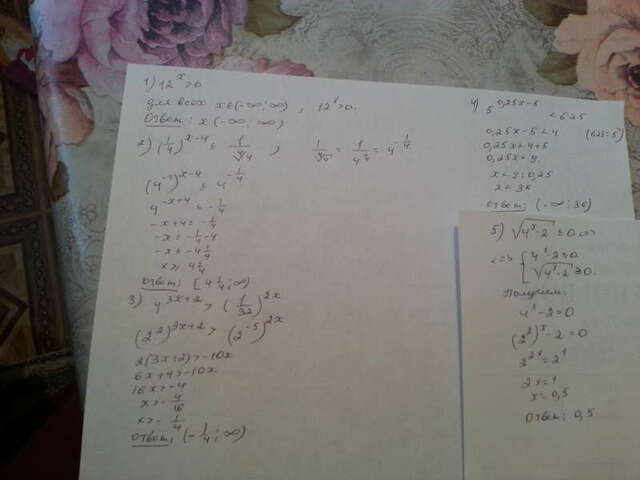 1) 12^x > 0
для всех x∈(-∞; ∞), 12^x > 0.
Ответ: x (-∞; ∞)
2) (1/4)^(x-4) ≤
(4^-1)^(x-4) ≤ 4^(-1/4)
4^(-x+4) ≤ -1/4
-x+4 ≤ -1/4
-x ≤ -1/4 -4
-x ≤ -4 1/4
x ≥ 4 1/4
Ответ: [4 1/4; ∞)
3) 4^(3x+2) > (1/32)^(2x)
(2^2)^(3x+2) > (2^-5)^(2x)
2(3x+2) > -10x
6x+4 > -10x
16x > -4
x > -4/16
x > -1/4
Ответ: (-1/4; ∞)
4) 5^(0,25x-5) < 625
0,25x-5 < 4 (625=5^4)
0,25x < 4+5
0,25x < 9
x < 9 : 0,25
x < 36
Ответ: (-∞; 36)
5) √(4^x-2) ≤ 0 <=>
<=> { 4^x-2 ≥ 0
√(4^x-2) ≥ 0.
Получим:
4^x-2=0
(2^2)^x-2=0
2^(2x)=2^1
2x=1
x=0,5
Ответ: 0,5